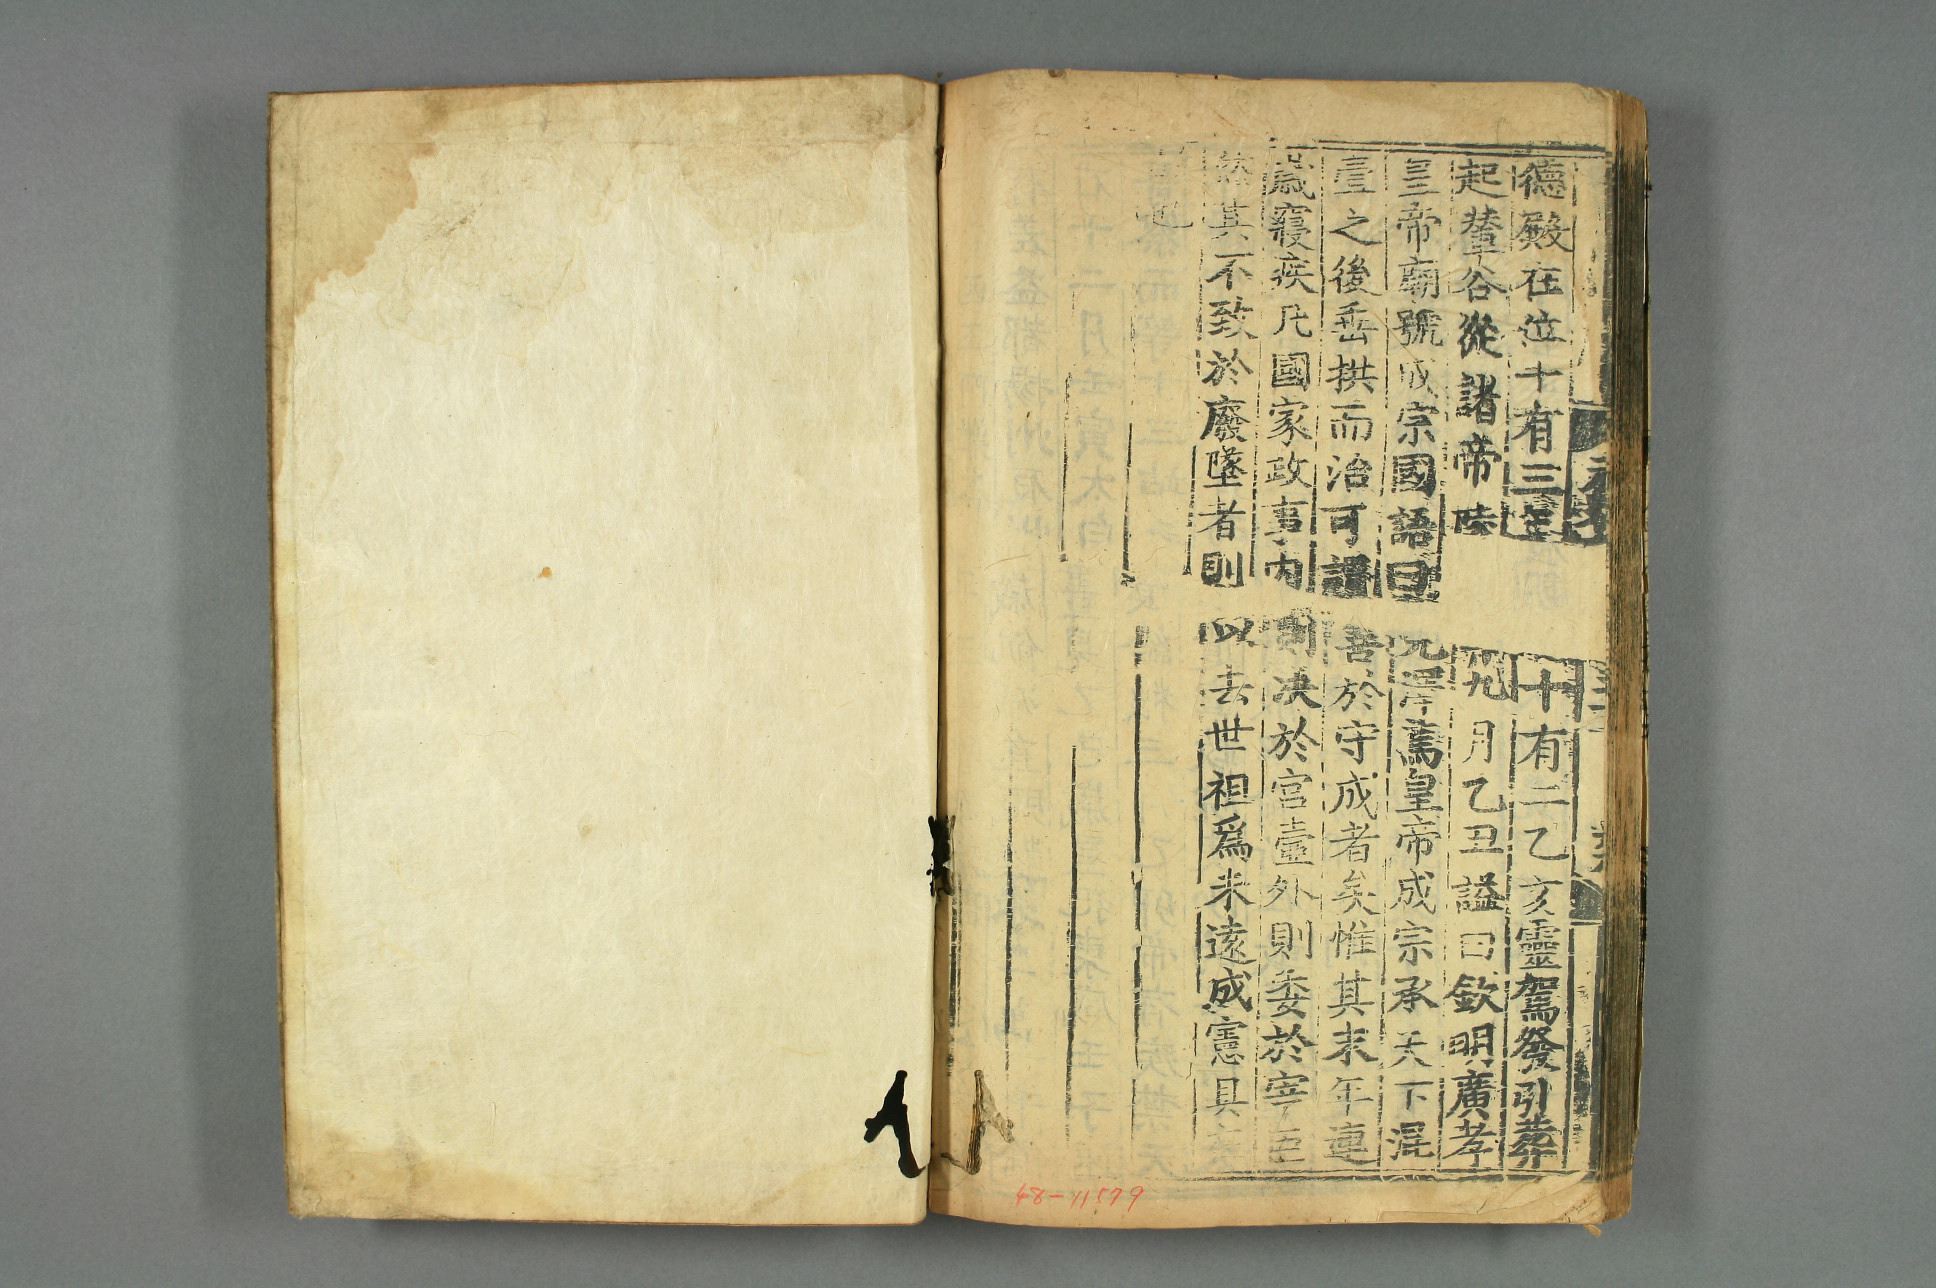 德殿在位十有三年 十有二乙亥靈駕發引葬
起輦谷從諸帝陵 九月乙丑諡曰欽明廣孝
皇帝廟號成宗國語曰 完澤篤皇帝成宗承天下混
壹之後垂拱而治可謂 善於守成者矣惟其末年連
歲寢疾凡國家政事內 則決於宮壼外則委於宰臣
然其不致於廢墜者則 以去世祖爲未遠成憲具
也
48-11579